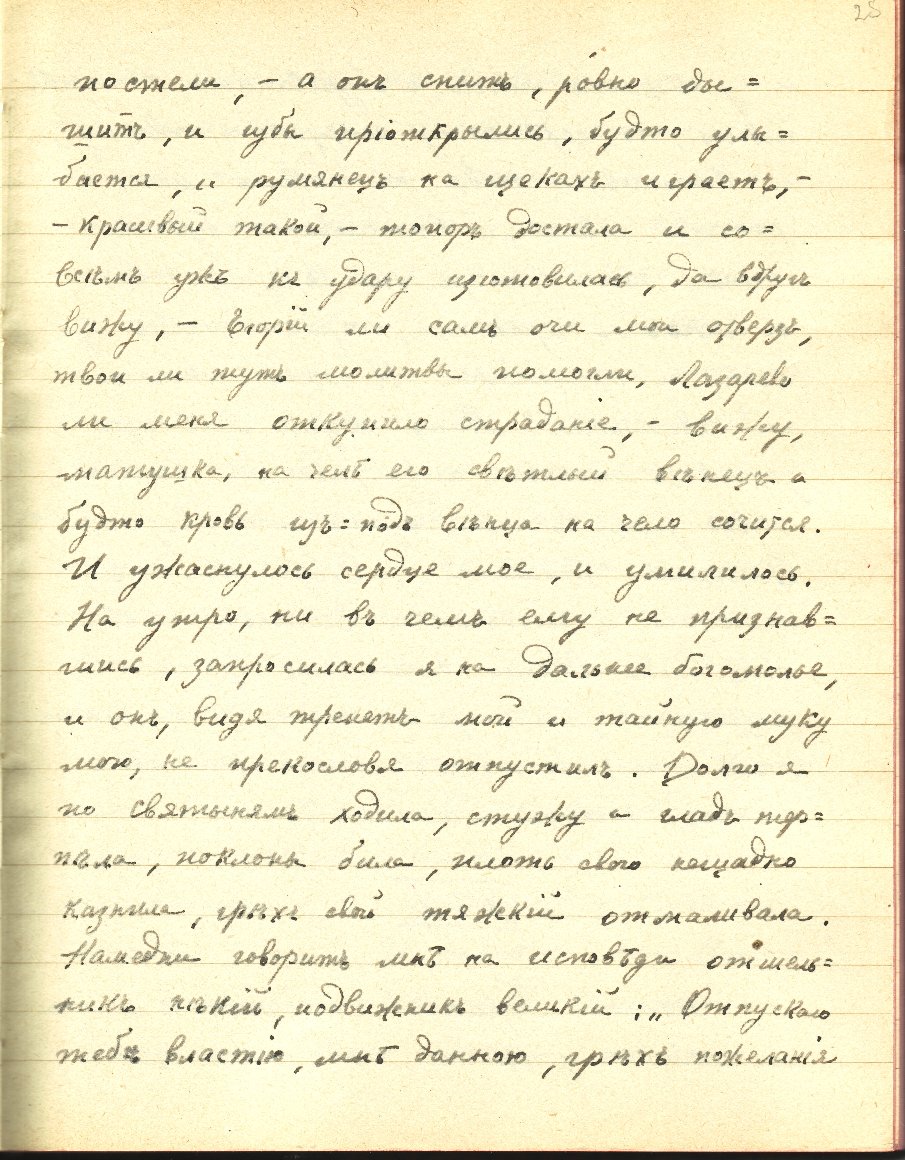 25
постели, – а онъ спитъ, ровно ды=
шитъ, и губы пріоткрылись, будто улы=
бается, и румянецъ на щекахъ играетъ, –
– красивый такой, – топоръ достала и со=
всѣмъ ужъ къ удару изготовилась, да вдругъ
вижу, – Егорій ли самъ очи мои отверзъ,
твои ли тутъ молитвы помогли, Лазарево
ли меня откупило страданіе, – вижу,
матушка, на челѣ его свѣтлый вѣнецъ и
будто кровь изъ=подъ вѣнца на чело сочится.
И ужаснулось сердце мое, и умилилось.
На утро, ни въ чемъ ему не признав=
шись, запросилась я на дальнее богомолье,
и онъ, видя трепетъ мой и тайную муку
мою, не прекословя отпустилъ. Долго я
по святынямъ ходила, стужу и гладъ тер=
пѣла, поклоны била, плоть свою нещадно
казнила, грѣхъ свой тяжкій отмаливала.
Намедни говоритъ мнѣ на исповѣди отшель=
никъ нѣкій, подвижникъ великій: „Отпускаю
тебѣ властію, мнѣ данною, грѣхъ пожеланія